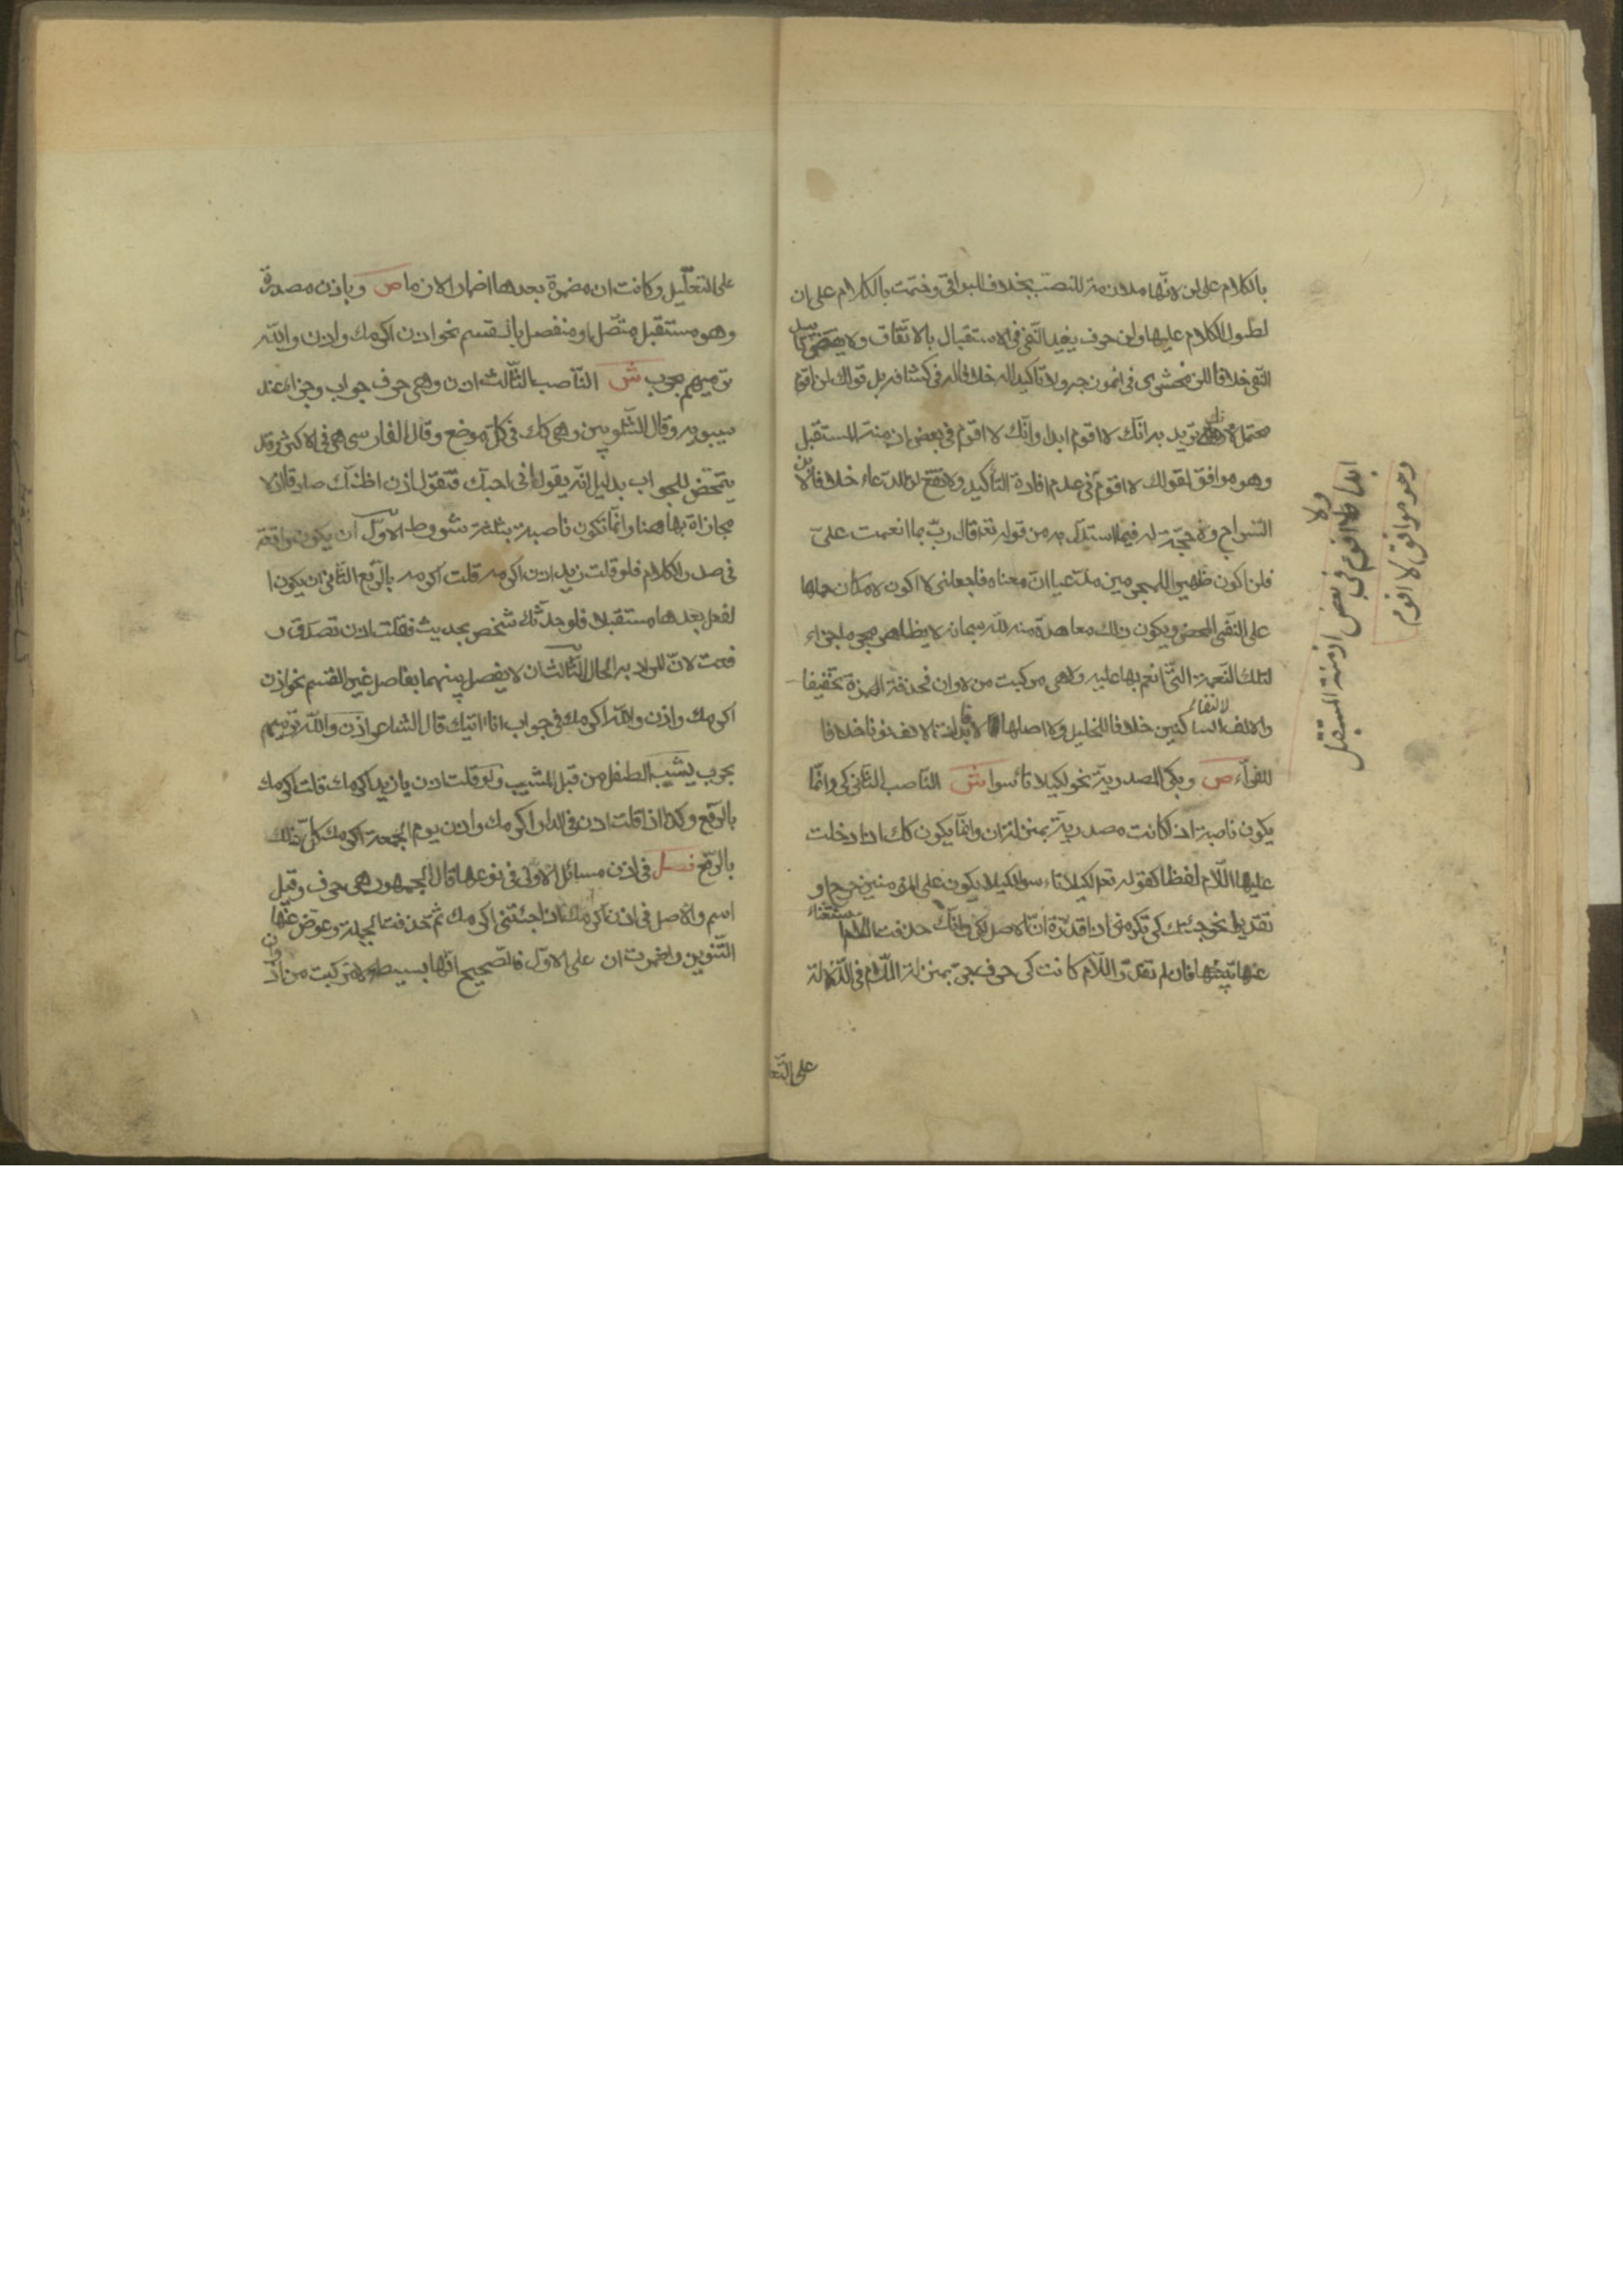 بالكلام على لن لانها ملازمة للنصب بخلاف البواقي وختمت بالكلام على ان
لطول الكلام عليها ولن حرف يفيد النفي في الاستقبال بالاتفاق ولا يقتضي تأبيد
النفي خلافا للزمخشري في انموذجه ولا تأكيدا له خلافا له في كشافه بل قولك لن اقوم
محتمل لان تريد به انك لا اقوم ابدا وانك لا اقوم في بعض ازمنة المستقبل
وهو موافق لقولك لا اقوم في عدم افادة التأكيد ولا تقع لن للدعاء خلافا لابن
السراج ولا حجة له فيما استدل به من قوله تعه قال رب بما انعمت علي
فلن اكون ظهيرا للمجرمين مدعيا ان معناه فاجعلني لا اكون لامكان حملها
على النفي المحض ويكون ذلك معاهدة منه لله سبحانه لا يظاهر مجرما جزاء
لتلك النعمة التي انعم بها عليه ولا هي مركبت من لا وان فحذفة الهمزة تخفيفا
والالف لالتقاء الساكنين خلافا للخليل ولا اصلها لا فابدلت الالف نونا خلافا
للفراء ص وبكي المصدرية نحو لكيلا تأسوا ش الناصب الثاني كي وانما
يكون ناصبة اذا كانت مصدرية بمنزلة ان وانما يكون كك اذا دخلت
عليها اللام لفظا كقوله تعه لكيلا تأسوا لكيلا يكون على المؤمنين حرج او
تقديرا نحو جئتك كي تكرمني اذا قدرة ان الاصل لكي وانك حذفت اللام استغناء
عنها بنيتها فان لم تقدر اللام كانت كي حرف جر بمنزلة اللام في الدلالة
على التعـ
ولا
ابدا اقوم في بعض ازمنة المستقبل
وهو موافق لا اقوم
على التعليل وكانت ان مضمرة بعدها اضمارا لازما ص وباذن مصدرة
وهو مستقبل متصل او منفصل بالقسم نحو اذن اكرمك واذن والله
نرميهم بحرب ش الناصب الثالث اذن وهي حرف جواب وجزاء عند
سيبويه وقال الشلوبين وهي كك في كل موضع وقال الفارسي هي في الاكثر وقد
يتمحض للجواب بدليل انه يقول اني احبك فتقول اذن اظنك صادقا اذ لا
مجازاة بها هنا وانما تكون ناصبة بثلثة شروط الاول ان يكون واقعة
في صدر الكلام فلو قلت زيد اذن اكرمه قلت اكرمه بالرفع الثاني ان يكون ا
لفعل بعدها مستقبلا فلو حدثك شخص بحديث فقلت اذن تصدق ر
فعت لان المراد به الحال الثالث ان لا يفصل بينهما بفاصل غير القسم نحو اذن
اكرمك واذن والله اكرمك في جواب انا اتيك قال الشاعر اذن والله نرميهم
بحرب يشيب الطفل من قبل المشيب ولو قلت اذن يا زيد اكرمك قلت اكرمك
بالرفع وكذا اذا قلت اذن في الدار اكرمك واذن يوم الجمعة اكرمك كل ذلك
بالرفع فصل في اذن مسائل الاولى في نوعها قال الجمهور هي حرف وقيل
اسم والاصل في اذن اكرمك اذا جئتني اكرمك ثم حذفت الجملة وعوض عنها
التنوين واضمرت ان على الاول فالصحيح انها بسيطة لا مركبت من اذ وان